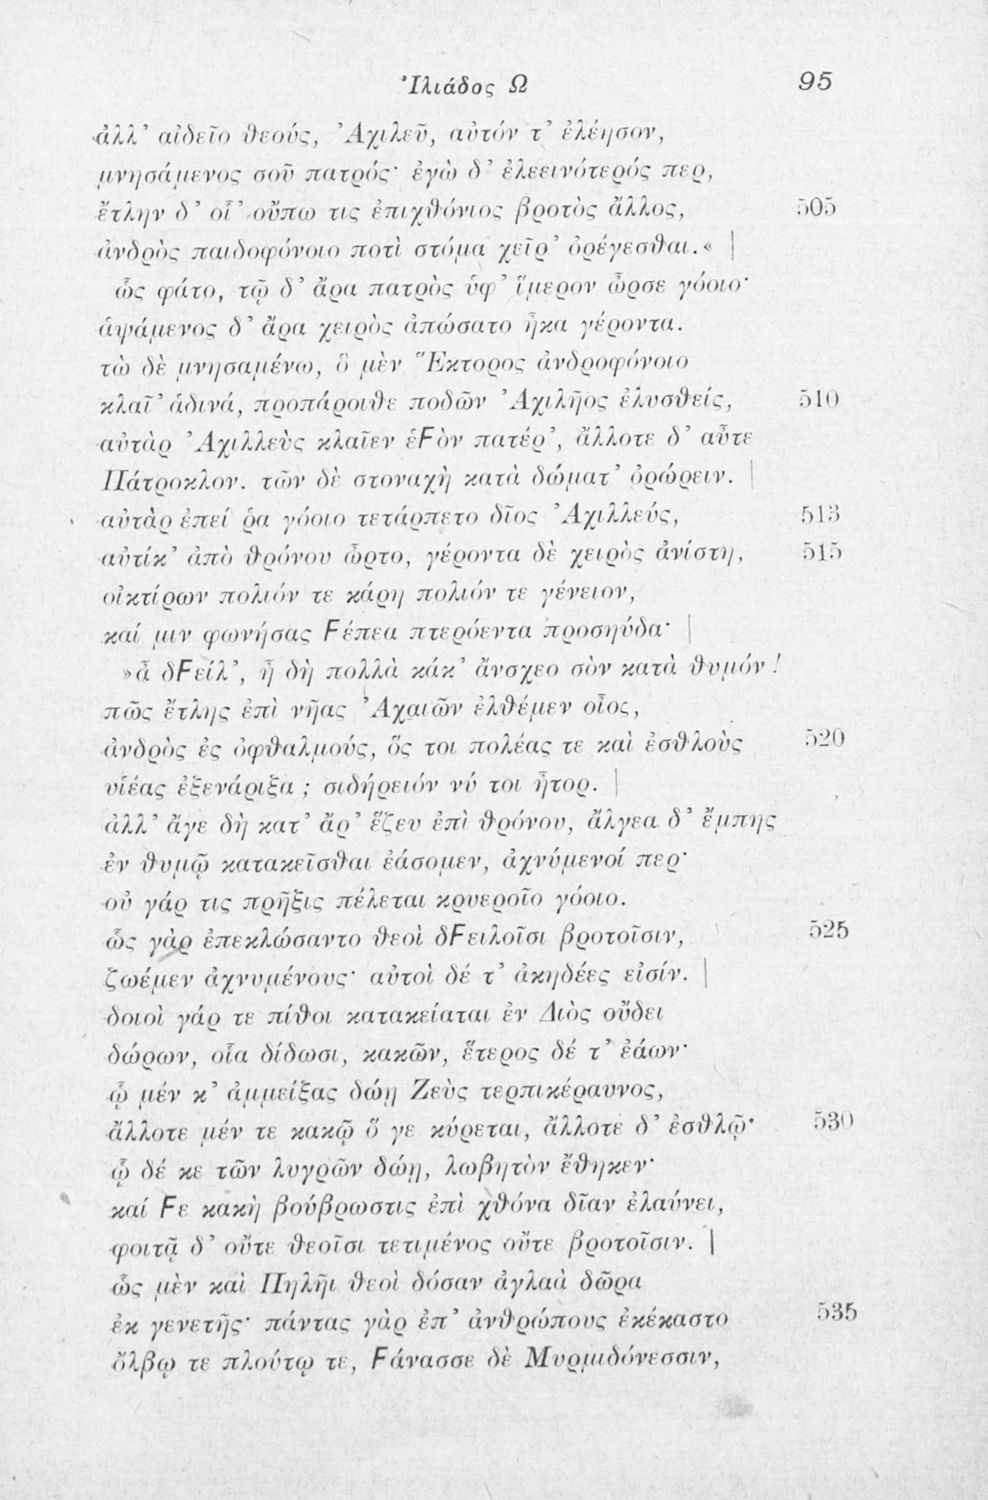 Ἰλιάδος Ω 95
ἀλλ’ αἰδεῖο θεούς, Ἀχιλεῦ, αὐτόν τ’ ἐλέησον,
μνησάμενος σοῦ πατρός· ἐγὼ δ’ ἐλεεινότερός περ,
ἔτλην δ’ οἷ’ οὔπω τις ἐπιχθόνιος βροτὸς ἄλλος, 505
ἀνδρὸς παιδοφόνοιο ποτὶ στόμα χεῖρ’ ὀρέγεσθαι.« |
ὣς φάτο, τῷ δ’ ἄρα πατρὸς ὑφ’ ἵμερον ὦρσε γόοιο·
ἁψάμενος δ’ ἄρα χειρὸς ἀπώσατο ἦκα γέροντα.
τὼ δὲ μνησαμένω, ὃ μὲν Ἕκτορος ἀνδροφόνοιο
κλαῖ’ ἁδινά, προπάροιθε ποδῶν Ἀχιλῆος ἐλυσθείς, 510
αὐτὰρ Ἀχιλλεὺς κλαῖεν ἑϜὸν πατέρ’, ἄλλοτε δ’ αὖτε
Πάτροκλον. τῶν δὲ στοναχὴ κατὰ δώματ’ ὀρώρειν. |
αὐτὰρ ἐπεί ῥα γόοιο τετάρπετο δῖος Ἀχιλλεύς, 513
αὐτίκ’ ἀπὸ θρόνου ὦρτο, γέροντα δὲ χειρὸς ἀνίστη, 515
οἰκτίρων πολιόν τε κάρη πολιόν τε γένειον,
καί μιν φωνήσας Ϝέπεα πτερόεντα προσηύδα· |
»ἆ δϜείλ’, ἦ δὴ πολλὰ κάκ’ ἄνσχεο σὸν κατὰ θυμόν!
πῶς ἔτλης ἐπὶ νῆας Ἀχαιῶν ἐλθέμεν οἶος,
ἀνδρὸς ἐς ὀφθαλμούς, ὅς τοι πολέας τε καὶ ἐσθλοὺς 520
υἱέας ἐξενάριξα; σιδήρειόν νύ τοι ἦτορ. |
ἀλλ’ ἄγε δὴ κατ’ ἄρ’ ἕζευ ἐπὶ θρόνου, ἄλγεα δ’ ἔμπης
ἐν θυμῷ κατακεῖσθαι ἐάσομεν, ἀχνύμενοί περ·
οὐ γάρ τις πρῆξις πέλεται κρυεροῖο γόοιο.
ὣς γὰρ ἐπεκλώσαντο θεοὶ δϜειλοῖσι βροτοῖσιν, 525
ζωέμεν ἀχνυμένους· αὐτοὶ δέ τ’ ἀκηδέες εἰσίν. |
δοιοὶ γάρ τε πίθοι κατακείαται ἐν Διὸς οὔδει
δώρων, οἷα δίδωσι, κακῶν, ἕτερος δέ τ’ ἐάων·
ᾧ μέν κ’ ἀμμείξας δώῃ Ζεὺς τερπικέραυνος,
ἄλλοτε μέν τε κακῷ ὅ γε κύρεται, ἄλλοτε δ’ ἐσθλῷ· 530
ᾧ δέ κε τῶν λυγρῶν δώῃ, λωβητὸν ἔθηκεν·
καί Ϝε κακὴ βούβρωστις ἐπὶ χθόνα δῖαν ἐλαύνει,
φοιτᾷ δ’ οὔτε θεοῖσι τετιμένος οὔτε βροτοῖσιν. |
ὣς μὲν καὶ Πηλῆι θεοὶ δόσαν ἀγλαὰ δῶρα
ἐκ γενετῆς· πάντας γὰρ ἐπ’ ἀνθρώπους ἐκέκαστο 535
ὄλβῳ τε πλούτῳ τε, Ϝάνασσε δὲ Μυρμιδόνεσσιν,